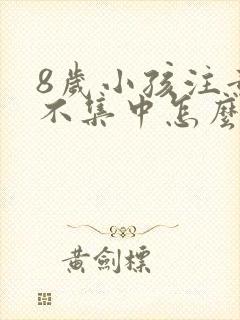 8歲小孩注
不集中怎麼
黃劍標